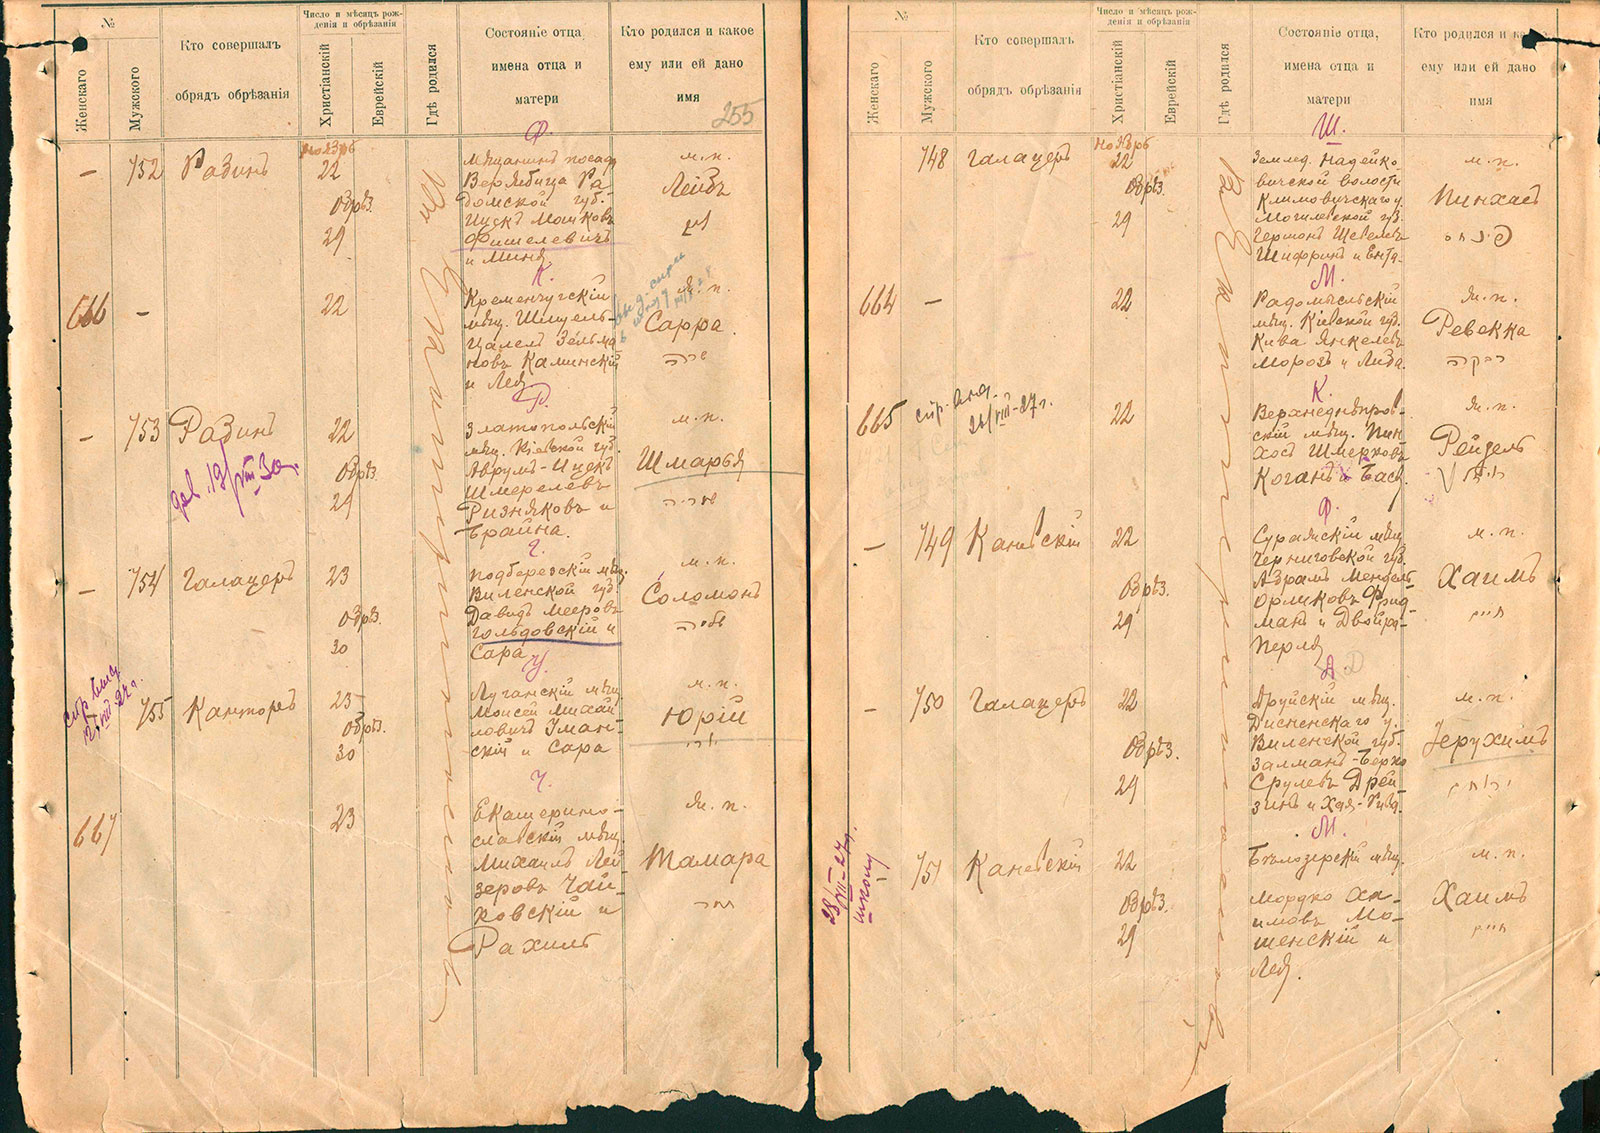 №
Женскаго
Мужского
Кто совершалъ
обрядъ обрѣзанія
Число и мѣсяцъ рож-
денія и обрѣзанія
Христіанскій
Еврейскій
Гдѣ родился
Состояніе отца,
имена отца и
матери
Кто родился и какое
ему или ей дано
имя
255
Ф.
Ноябрь
– 752 Радинъ 22
Обрѣз.
29
мѣщанинъ посад
домской губ.
Ицекъ Мошковъ
Фишелевичъ
и Миндя
м. п.
Лейбъ
К.
666 – 22
Кременчугскій
мѣщ. Шмуель-
Цалелъ Зельма
новъ Каминскій
и Лея
ж. п.
Сарра
שרה
Р.
– 753 Радинъ 22
Обрѣз.
29
Златопольскій
мѣщ. Кіевской губ.
Аврумъ-Ицекъ
Шмерелевъ
Ризняковъ и
Брайна.
м. п.
Шмарья
שמריה
19/VIII 30 г.
– 754 Галацеръ 23
Обрѣз.
30
Подберезскій мѣщ.
Виленской губ.
Давидъ Мееровъ
Гольдовскій и
Сара
м. п.
Соломонъ
שלמה
У.
755 Канторъ 23
Обрѣз.
30
Луганскій мѣщ.
Моисей Михай
ловичъ Уман-
скій и Сара
м. п.
Юрій
Ч.
667 23
Екатерино-
славскій мѣщ.
Михаилъ Лей
зеровъ Чай-
ковскій и
Рахиль
ж. п.
Тамара
תמר
Въ Екатеринославѣ
№
Женскаго
Мужского
Кто совершалъ
обрядъ обрѣзанія
Число и мѣсяцъ рож-
денія и обрѣзанія
Христіанскій
Еврейскій
Гдѣ родился
Состояніе отца,
имена отца и
матери
Кто родился и какое
ему или ей дано
имя
Ш.
Ноябрь
748 Галацеръ 22
Обрѣз.
29
Землед. Надейко
вичской волости
Климовичскаго у.
Могилевской губ.
Шифринъ и Ента.
м. п.
Пинхасъ
פינחס
М.
664 – 22
Радомысльскій
мѣщ. Кіевской губ.
Кива Янкелевъ
Морозъ и Либа.
ж. п.
Ревекка
רבקה
К.
665 22
Верхнеднѣпров-
скій мѣщ. Пин-
хосъ Шмерковъ
Коганъ и Бася.
ж. п.
Рейзель
רייזל
Ф.
– 749 Каневскій 22
Обрѣз.
29
Суражскій мѣщ.
Черниговской губ.
Абрамъ Мендель
Орликовъ Фрид-
манъ и Двойра-
Перля
м. п.
Хаимъ
חיים
Д
– 750 Галацеръ 22
Обрѣз.
29
Друйскій мѣщ.
Дисненскаго у.
Виленской губ.
Залманъ-Берко
Срулевъ Дрей-
зинъ и Хая-Рива.
м. п.
Іерухимъ
ירוחים
М.
– 751 Каневскій 22
Обрѣз.
29
Бѣлозерскій мѣщ.
Мордко Ха-
имовъ Мо-
шенскій и
Лея.
м. п.
Хаимъ
חיים
28/VII-27 г.
школу
Въ Екатеринославѣ